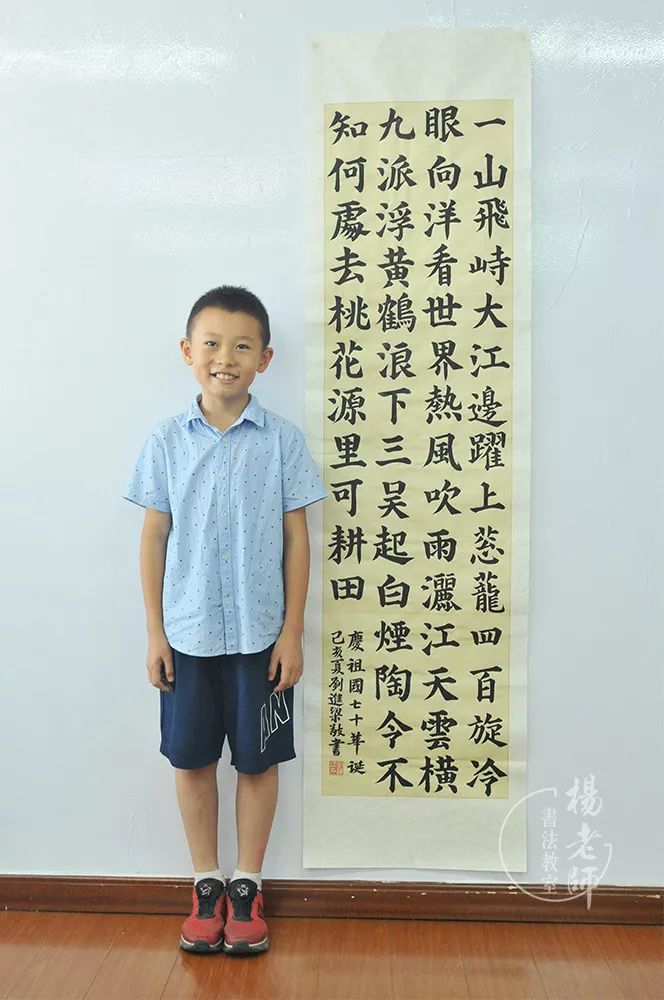 一山飛峙大江邊躍上葱蘢四百旋冷
眼向洋看世界熱風吹雨灑江天雲橫
九派浮黃鶴浪下三吳起白煙陶令不
知何處去桃花源里可耕田
慶祖國七十華誕
己亥夏劉進梁敬書
楊老師
書法教室
AN